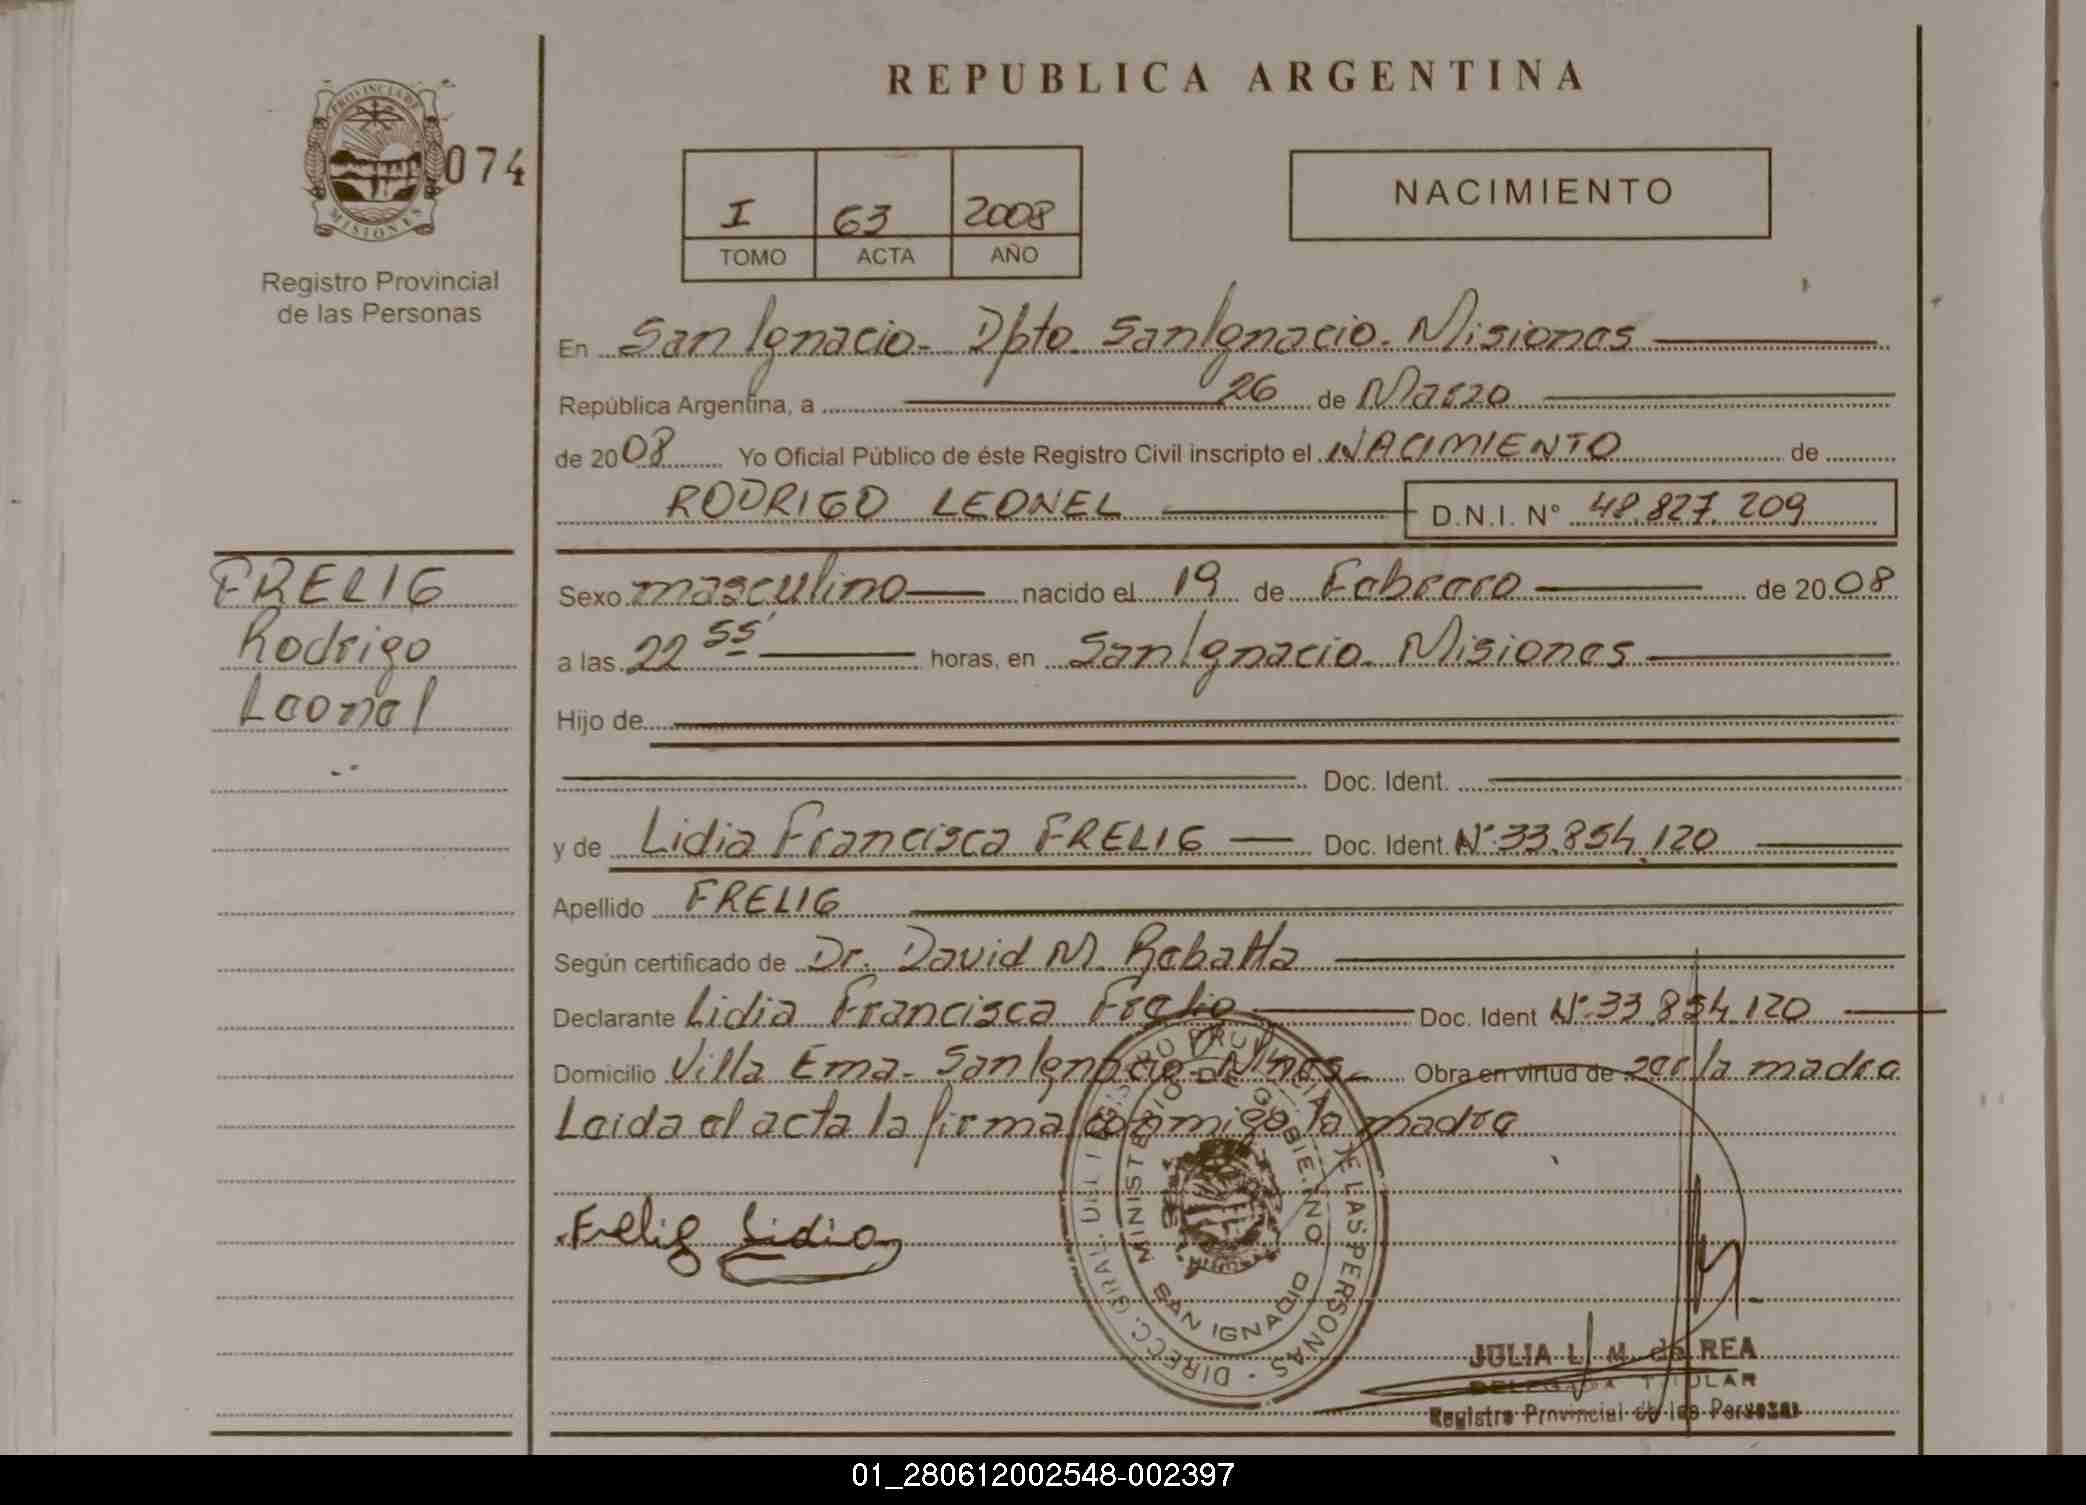 REPUBLICA ARGENTINA
PROVINCIA DE
MISIONES
074
Registro Provincial
de las Personas
I 63 2008
TOMO ACTA AÑO
NACIMIENTO
En San Ignacio - Dpto. San Ignacio - Misiones
República Argentina, a 26 de Marzo
de 2008 Yo Oficial Público de éste Registro Civil inscripto el NACIMIENTO de
RODRIGO LEONEL D.N.I. N° 48.827.209
FRELIG
Rodrigo
Leonel
Sexo masculino nacido el 19 de Febrero de 2008
a las 22 55' horas, en San Ignacio - Misiones
Hijo de
Doc. Ident.
y de Lidia Francisca FRELIG Doc. Ident. N° 33.854.120
Apellido FRELIG
Según certificado de Dr. David M. Rebatta
Declarante Lidia Francisca Frelig Doc. Ident N° 33.854.120
Domicilio Villa Ema - San Ignacio - Mnes - Obra en virtud de ser la madre
Leida el acta la firma conmigo la madre
Frelig Lidia
DIRECC. GRAL. DEL REGISTRO PROVINCIAL DE LAS PERSONAS
MINISTERIO DE GOBIERNO
SAN IGNACIO
JULIA L. M. de REA
DELEGADA TITULAR
Registro Provincial de las Personas
01_280612002548-002397